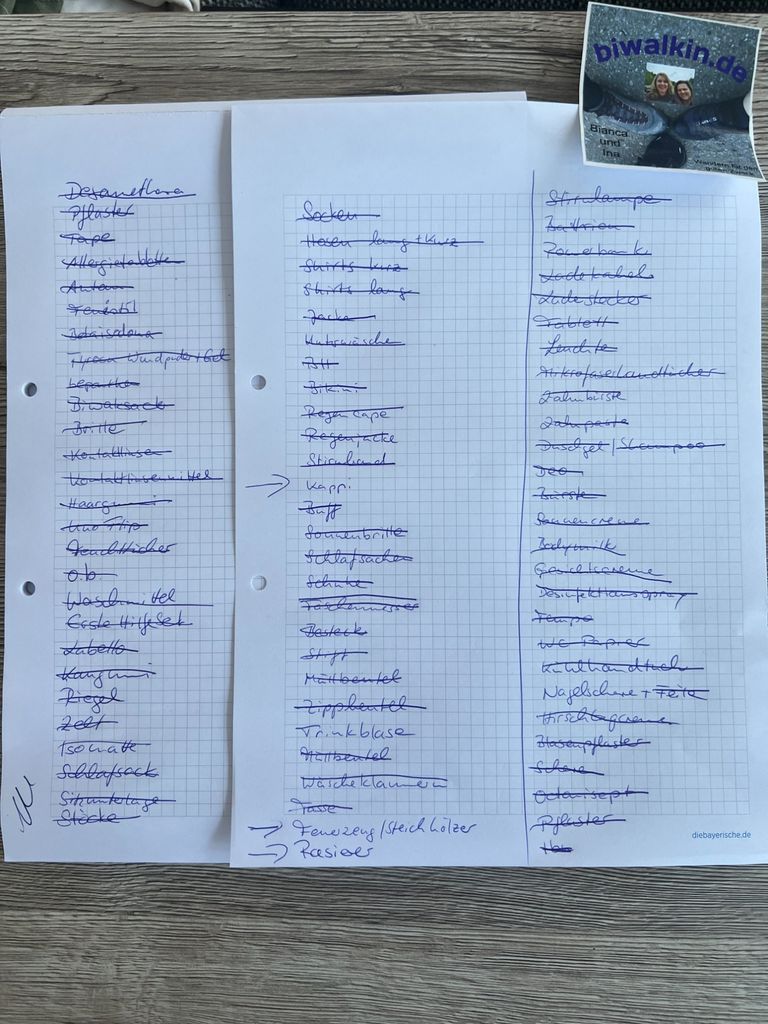 biwalkin.de
Bianca
und
Ina
Wandern für den
guten Zweck
Pflaster
Tape
Allergietablette
Autan
Fenistil
Betaisodona
Tyrosur Wundpuder + Gel
Lepanthen
Biwaksack
Brille
Kontaktlinsen
Kontaktlinsenmittel
Haargummi
Uno Flip
Feuchttücher
o.b.
Waschmittel
Erste Hilfe Set
Labello
Kaugummi
Riegel
Zelt
Isomatte
Schlafsack
Sitzunterlage
Stöcke
Socken
Hosen lang + kurz
Shirts kurz
Shirts lang
Jacke
Unterwäsche
BH
Bikini
Regencape
Regenjacke
Stirnband
Kappi
Buff
Sonnenbrille
Schlafsachen
Schuhe
Taschenmesser
Besteck
Stift
Müllbeutel
Zippbeutel
Trinkblase
Müllbeutel
Wäscheklammern
Tasse
Feuerzeug/Steichhölzer
Rasierer
Stirnlampe
Battrien
Powerbank
Ladekabel
Ladestecker
Tablett
Leuchte
Mikrofaserhandtücher
Zahnbürste
Zahnpasta
Duschgel/Shampoo
Deo
Bürste
Sonnencreme
Bodymilk
Gesichtscreme
Desinfektionsspray
Tempo
WC Papier
Kühlhandtuch
Nagelschere + Feile
Hirschtagcreme
Blasenpflaster
Schere
Octenisept
Pflaster
diebayerische.de